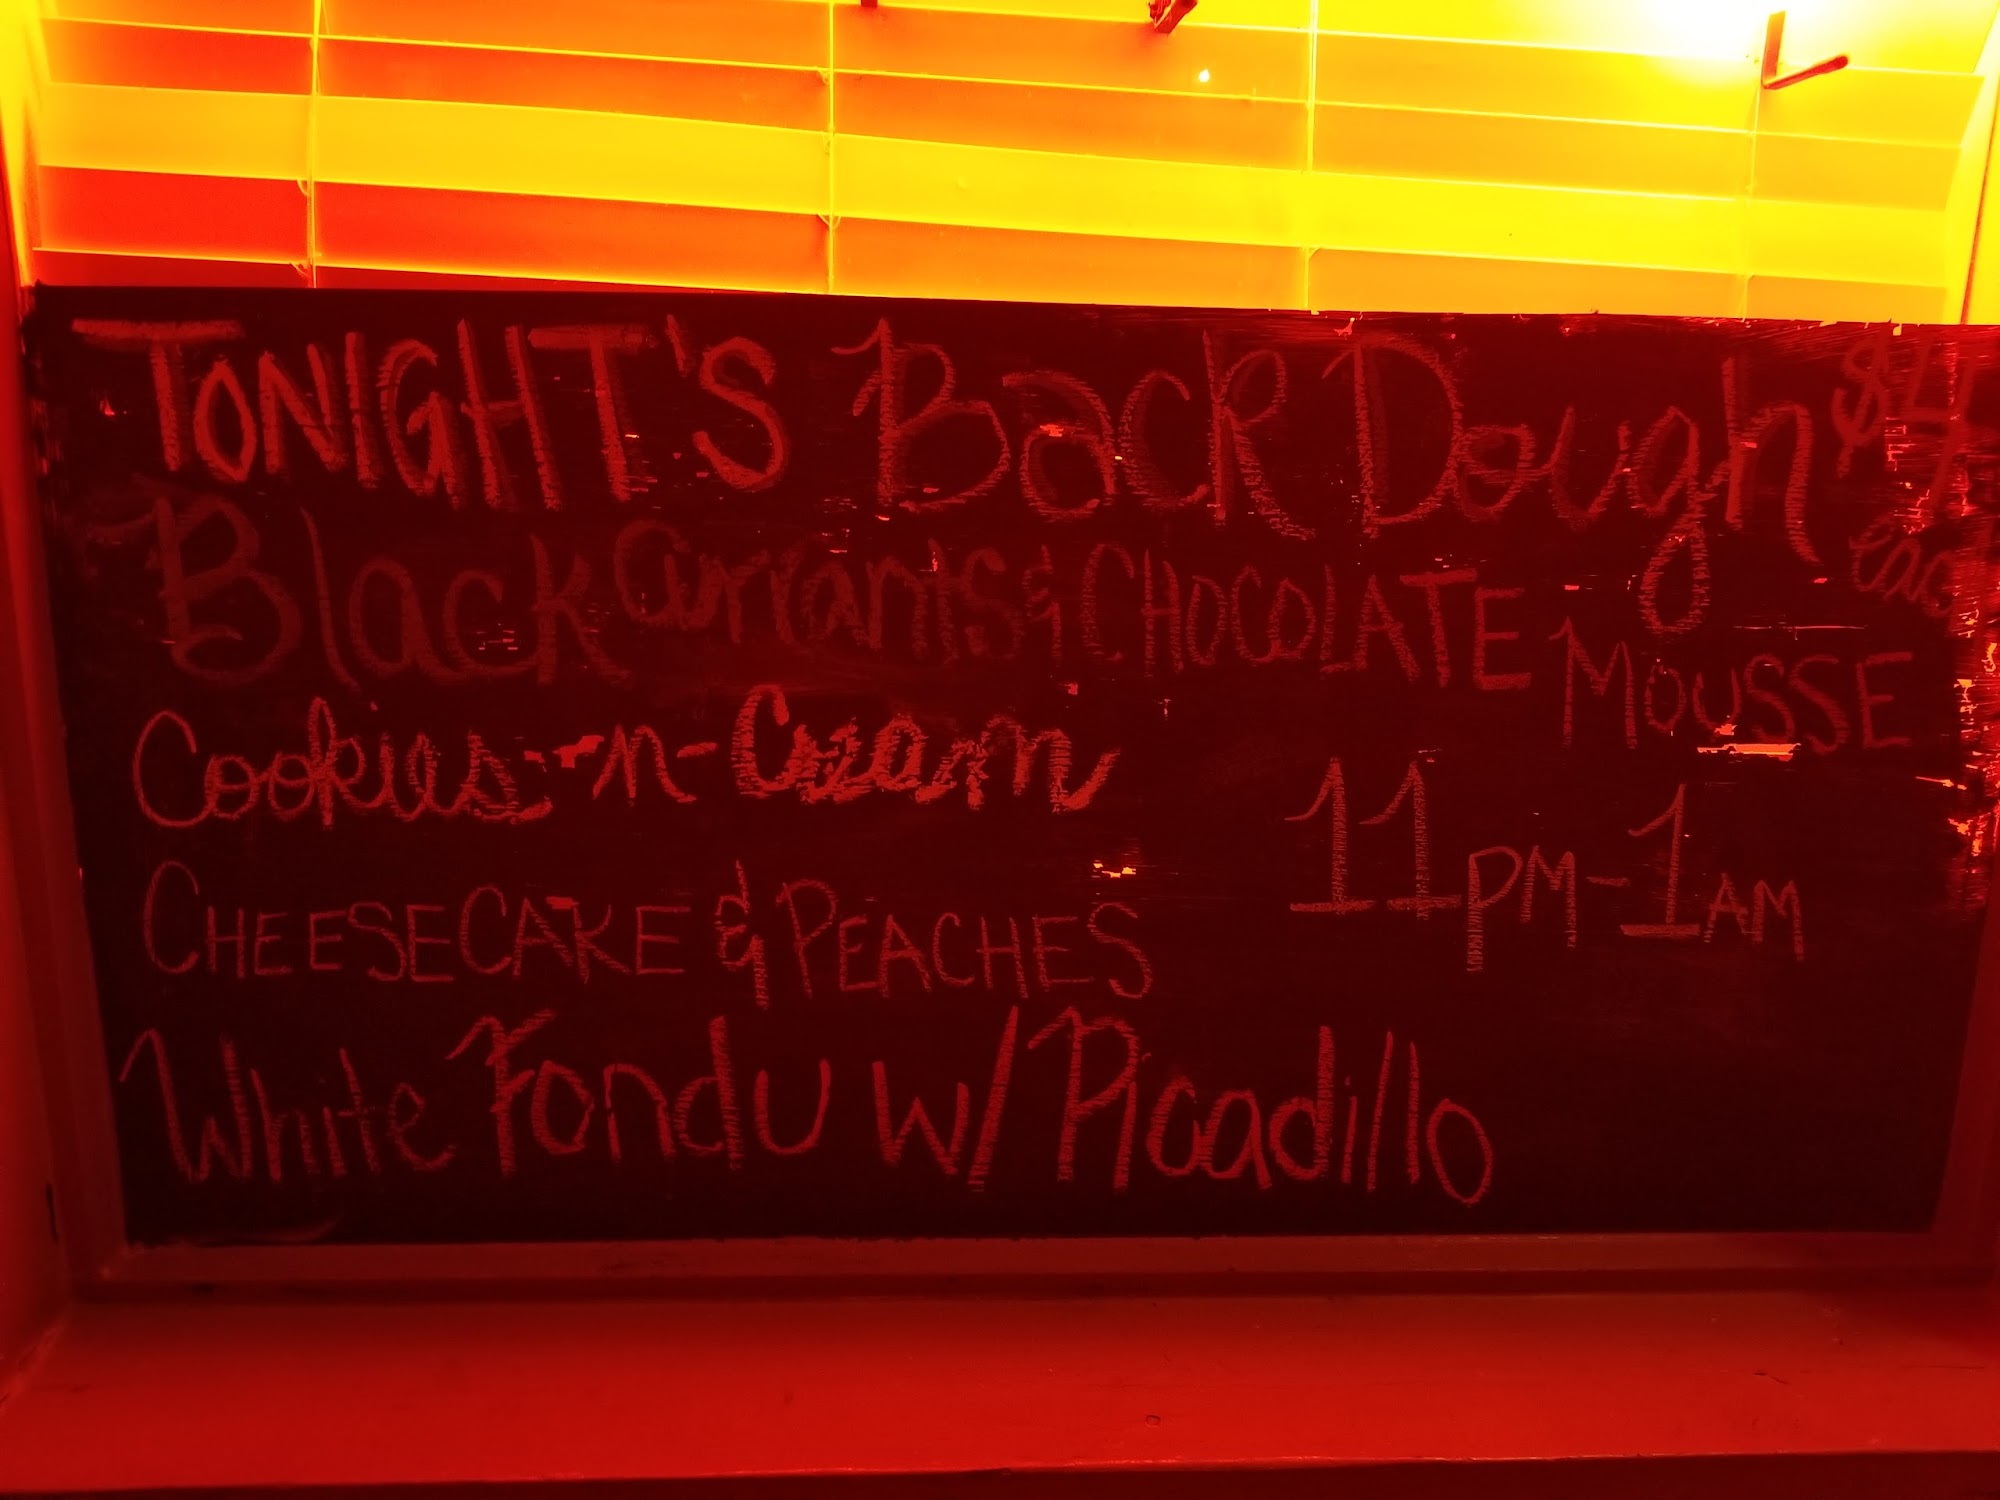 TONIGHT'S Back Dough $4
Black Currants & CHOCOLATE MOUSSE
Cookies-n-Cream
11PM-1AM
CHEESECAKE & PEACHES
White Fondu w/ Picadillo